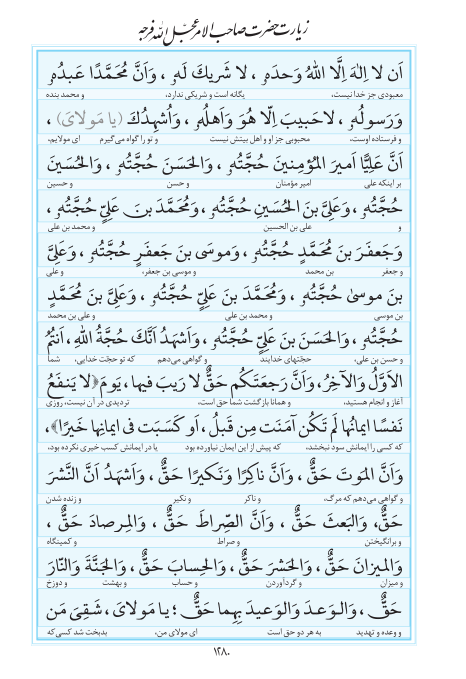 زیارت حضرت صاحب الامر عجّل الله فرجه
اَن لا اِلٰهَ اِلَّا اللهُ وَحدَهُ ، لا شَريكَ لَهُ ، وَاَنَّ مُحَمَّدًا عَبدُهُ
معبودی جز خدا نیست، یگانه است و شریکی ندارد، و محمد بنده
وَرَسولُهُ ، لا حَبيبَ اِلّا هُوَ وَاَهلُهُ ، وَاُشهِدُكَ (يا مَولايَ) ،
و فرستاده اوست، محبوبی جز او و اهل بیتش نیست و تو را گواه می‌گیرم ای مولایم،
اَنَّ عَلِيًّا اَميرَ المُؤمِنينَ حُجَّتُهُ ، وَالحَسَنَ حُجَّتُهُ ، وَالحُسَينَ
بر اینکه علی امیر مؤمنان و حسن و حسین
حُجَّتُهُ ، وَعَلِيَّ بنَ الحُسَينِ حُجَّتُهُ ، وَمُحَمَّدَ بنَ عَلِيٍّ حُجَّتُهُ ،
و علی بن الحسین و محمد بن علی
وَجَعفَرَ بنَ مُحَمَّدٍ حُجَّتُهُ ، وَموسَى بنَ جَعفَرٍ حُجَّتُهُ ، وَعَلِيَّ
و جعفر بن محمد و موسی بن جعفر، و علی
بنَ موسىٰ حُجَّتُهُ ، وَمُحَمَّدَ بنَ عَلِيٍّ حُجَّتُهُ ، وَعَلِيَّ بنَ مُحَمَّدٍ
بن موسی و محمد بن علی و علی بن محمد
حُجَّتُهُ ، وَالحَسَنَ بنَ عَلِيٍّ حُجَّتُهُ ، وَاَشهَدُ اَنَّكَ حُجَّةُ اللهِ ، اَنتُمُ
و حسن بن علی، حجتهای خدایند و گواهی می‌دهم که تو حجّت خدایی، شما
الاَوَّلُ وَالآخِرُ، وَاَنَّ رَجعَتَكُم حَقٌّ لا رَيبَ فيها، يَومَ ﴿لا يَنفَعُ
آغاز و انجام هستید، و همانا بازگشت شما حق است، تردیدی در آن نیست، روزی
نَفسًا ايمانُها لَم تَكُن آمَنَت مِن قَبلُ ، اَو كَسَبَت فى ايمانِها خَيرًا﴾،
که کسی را ایمانش سود نبخشد، که پیش از این ایمان نیاورده بود یا در ایمانش کسب خیری نکرده بود،
وَاَنَّ المَوتَ حَقٌّ ، وَاَنَّ ناكِرًا وَنَكيرًا حَقٌّ ، وَاَشهَدُ اَنَّ النَّشرَ
و گواهی می‌دهم که مرگ، و ناکر و نکیر و زنده شدن
حَقٌّ، وَالبَعثَ حَقٌّ ، وَاَنَّ الصِّراطَ حَقٌّ ، وَالمِرصادَ حَقٌّ ،
و برانگیختن و صراط و کمینگاه
وَالميزانَ حَقٌّ ، وَالحَشرَ حَقٌّ ، وَالحِسابَ حَقٌّ ، وَالجَنَّةَ وَالنّارَ
و میزان و گردآوردن و حساب و بهشت و دوزخ
حَقٌّ ، وَالوَعدَ وَالوَعيدَ بِهِما حَقٌّ ؛ يا مَولايَ ، شَقِيَ مَن
و وعده و تهدید به هر دو حق است ای مولای من، بدبخت شد کسی که
۱۲۸۰